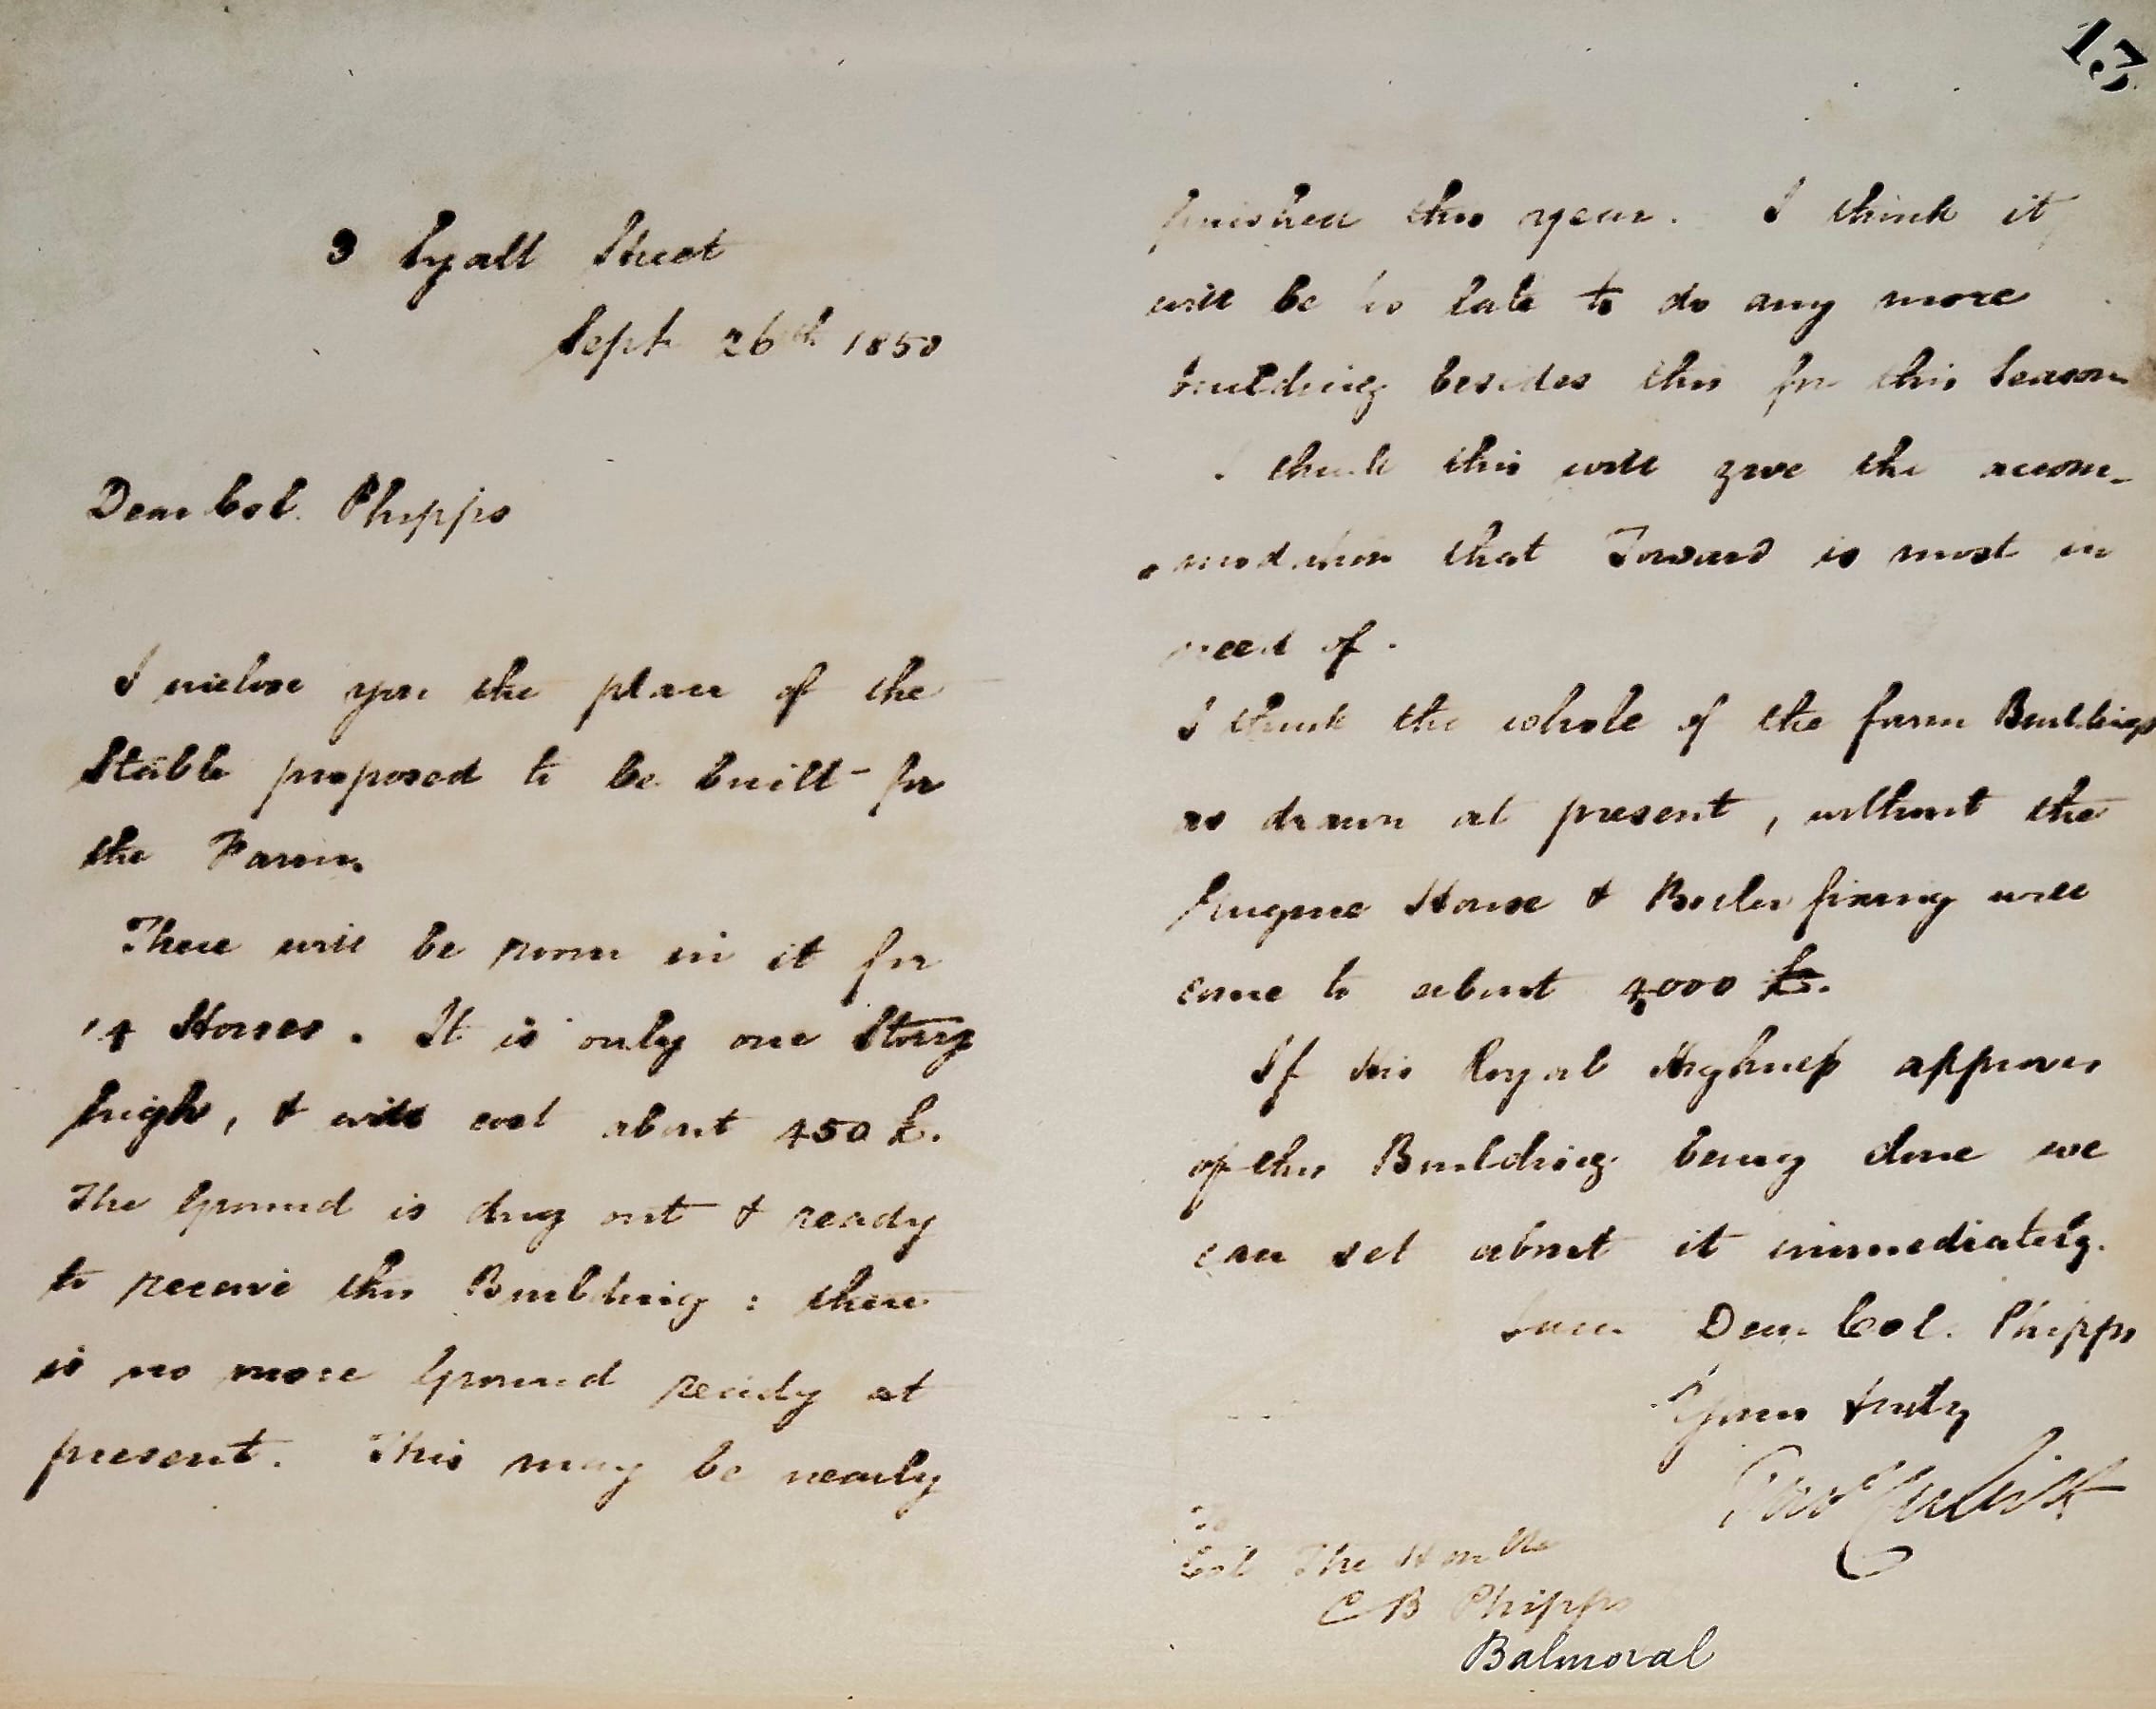 13
3 Lyall Street
Sept 26th 1850
Dear Col. Phipps
I inclose you the plan of the
Stable proposed to be built for
the Farm.
There will be room in it for
14 Horses. It is only one Story
high, & will cost about 450 £.
The Ground is dug out & ready
to receive this Building: there
is no more Ground ready at
present. This may be nearly
finished this year. I think it
will be to late to do any more
building besides this for this Season
I think this will give the accom-
-modation that Toward is most in
need of.
I think the whole of the farm Buildings
as drawn at present, without the
Engine House & Boiler fixing will
come to about 4000 £.
If His Royal Highness approves
of this Building being done we
can set about it immediately.
I am Dear Col. Phipps
Yours truly
Thos Cubitt
To
Col The Honble
C B Phipps
Balmoral